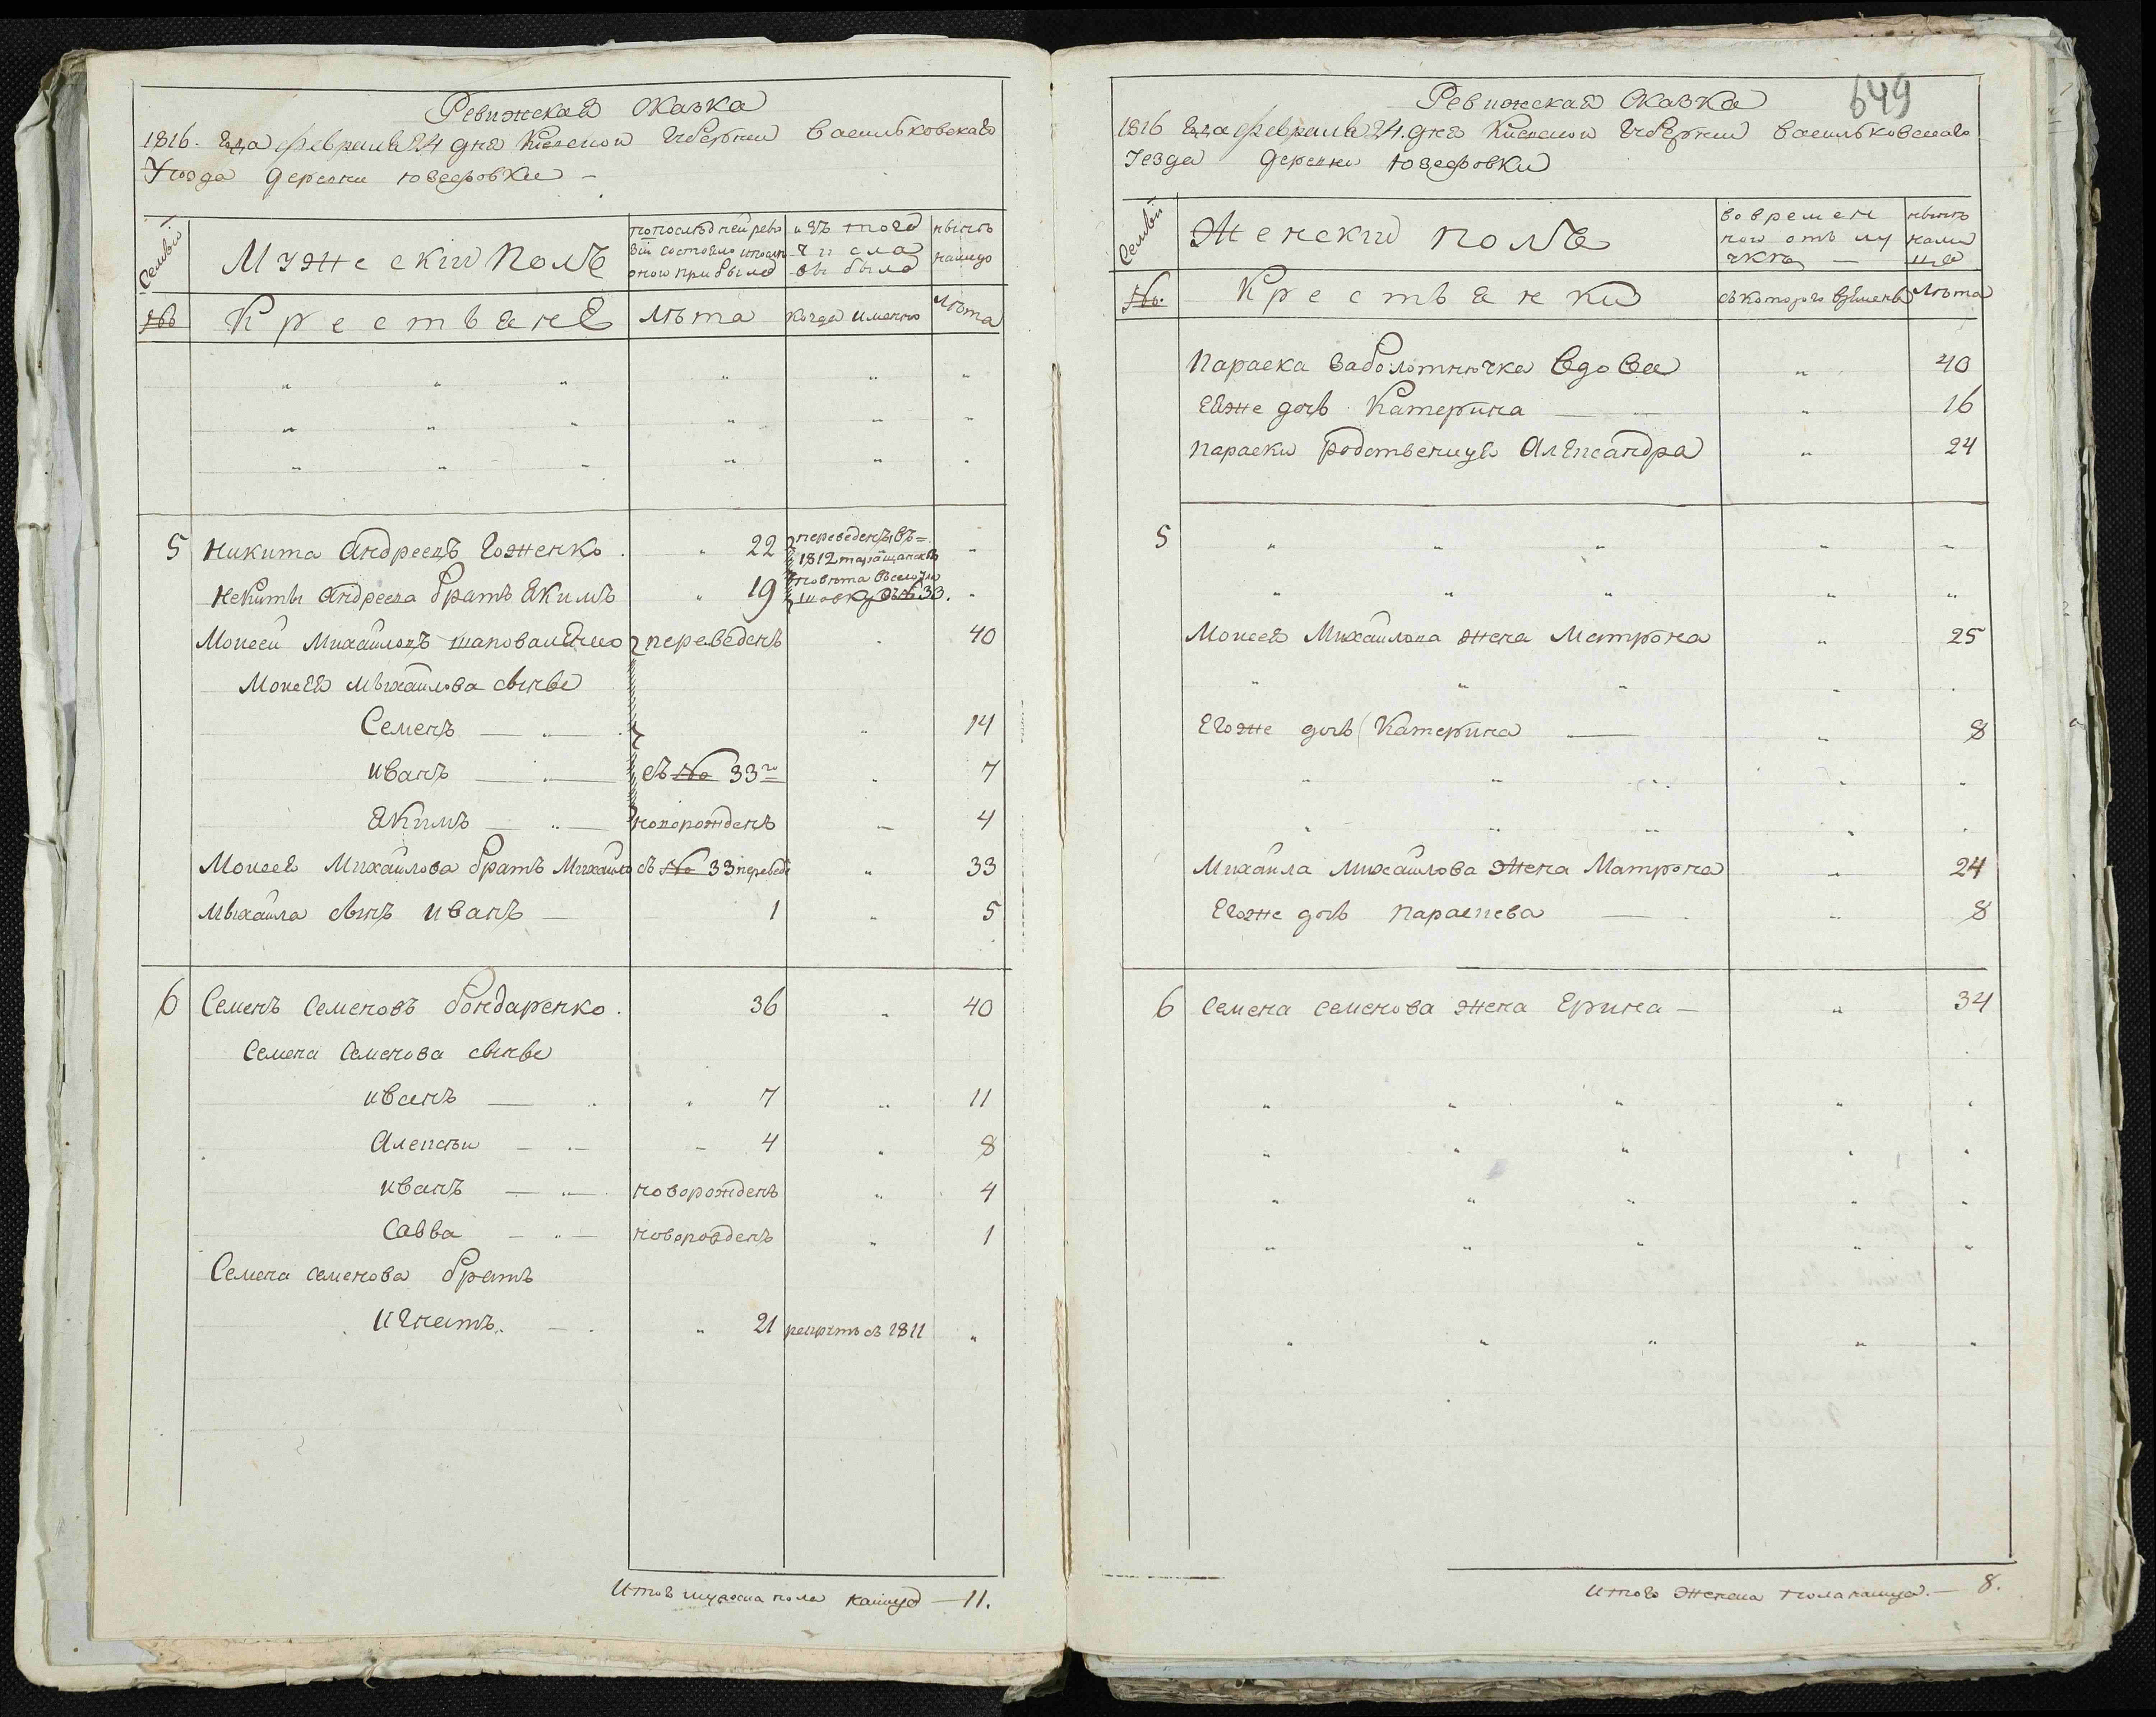 Ревижская сказка
1816. года февраля 24 дня Киевской губернии васильковскаго
Уезда деревни юзефовки
Семьи
Мужескии Полъ
попоследней реви
зіи состояло ипосли
оной прибыло
изъ того
числа
выбыло
нынѣ
налицо
№
Крестьяне
лѣта
когда именно
лѣта
5 Никита Андреевъ Гоженко 22
переведенъ въ
1812 таращанскъ
повета Въсело
19
Некиты Андреева братъ Якимъ
33.
Моисеи Михаиловъ шаповаленко переведенъ 40
Моисея мыхаилова сынве
Семенъ 14
иванъ съ № 33го 7
Якимъ новорожденъ 4
Моисея Михаилова братъ Михаило съ № 33 переведе 33
мыхаила сынъ иванъ 1 5
6 Семенъ Семеновъ бондаренко. 36 40
Семена Семенова сынве
иванъ 7 11
Алексѣи 4 8
иванъ новорожденъ 4
Савва новорожденъ 1
Семена семенова братъ
Игнатъ 21 рекрутъ съ 1811
Итого мужеска пола налицо 11.
649
Ревижская Сказка
1816 года февраля 24. дня Киевской губернии васильковскаго
Уезда деревни юзефовки
Семьи
Женский полъ
во времен
ной отлу
чкѣ
нынѣ
нали
цо
№.
Крестьянки
съкоторого времены
лѣта
Параска Заболотнючка Вдова 40
Еяже дочь Катерина 16
Параски родственица Александра 24
5
Моисея Михаилова жена Матрона 25
Егоже дочь Катерина 8
Михаила михаилова жена Матрона 24
Егоже дочь параскева 8
6 Семена семенова жена Ерина 34
Итого женска пола налицо. 8.